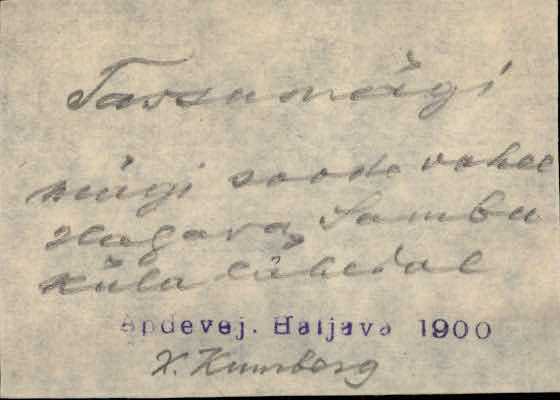 Tassumägi
mägi soode vahel
Hagara, Sambu
küla lähedal
Apdevej. Haljava 1900
X. Kumborg